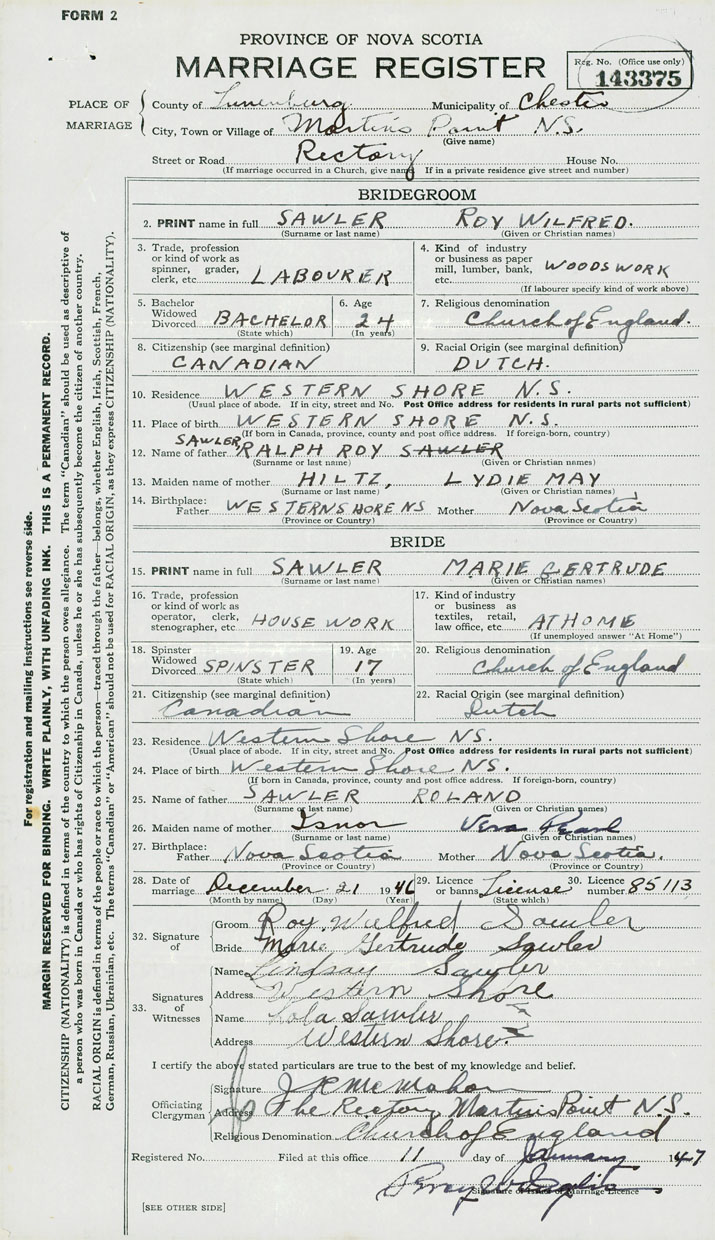 FORM 2
PROVINCE OF NOVA SCOTIA
MARRIAGE REGISTER
Reg. No. (Office use only)
143375
PLACE OF MARRIAGE
County of Lunenburg Municipality of Chester
City, Town or Village of Martins Point N.S.
(Give name)
Street or Road Rectory House No.
(If marriage occurred in a Church, give name If in a private residence give street and number)
BRIDEGROOM
2. PRINT name in full SAWLER ROY WILFRED.
(Surname or last name) (Given or Christian names)
3. Trade, profession or kind of work as spinner, grader, clerk, etc. LABOURER
4. Kind of industry or business as paper mill, lumber, bank, etc. WOODS WORK
(If labourer specify kind of work above)
5. Bachelor Widowed Divorced BACHELOR (State which)
6. Age 24 (In years)
7. Religious denomination Church of England.
8. Citizenship (see marginal definition) CANADIAN
9. Racial Origin (see marginal definition) DUTCH.
10. Residence WESTERN SHORE N.S.
(Usual place of abode. If in city, street and No. Post Office address for residents in rural parts not sufficient)
11. Place of birth WESTERN SHORE N.S.
(If born in Canada, province, county and post office address. If foreign-born, country)
12. Name of father SAWLER, RALPH ROY SAWLER
(Surname or last name) (Given or Christian names)
13. Maiden name of mother HILTZ, LYDIE MAY
(Surname or last name) (Given or Christian names)
14. Birthplace: Father WESTERN SHORE NS Mother Nova Scotia
(Province or Country) (Province or Country)
BRIDE
15. PRINT name in full SAWLER MARIE GERTRUDE
(Surname or last name) (Given or Christian names)
16. Trade, profession or kind of work as operator, clerk, stenographer, etc HOUSE WORK
17. Kind of industry or business as textiles, retail, law office, etc. AT HOME
(If unemployed answer "At Home")
18. Spinster Widowed Divorced SPINSTER (State which)
19. Age 17 (In years)
20. Religious denomination Church of England
21. Citizenship (see marginal definition) Canadian
22. Racial Origin (see marginal definition) Dutch
23. Residence Western Shore NS.
(Usual place of abode. If in city, street and No. Post Office address for residents in rural parts not sufficient)
24. Place of birth Western Shore NS.
(If born in Canada, province, county and post office address. If foreign-born, country)
25. Name of father SAWLER ROLAND
(Surname or last name) (Given or Christian names)
26. Maiden name of mother Isnor Vera Pearl
(Surname or last name) (Given or Christian names)
27. Birthplace: Father Nova Scotia Mother Nova Scotia.
(Province or Country) (Province or Country)
28. Date of marriage December 21 1946
(Month by name) (Day) (Year)
29. Licence or banns License (State which)
30. Licence number 85113
32. Signature of
Groom Roy Wilfred Sawler
Bride Marie Gertrude Sawler
33. Signatures of Witnesses
Name Lindsay Sawler
Address Western Shore
Name Lola Sawler
Address Western Shore.
I certify the above stated particulars are true to the best of my knowledge and belief.
Officiating Clergyman
Signature McMahon
Address The Rectory Martins Point N.S.
Religious Denomination Church of England
Registered No. Filed at this office 11 day of January 1947
Signature of Issuer of Marriage Licence
[SEE OTHER SIDE]
For registration and mailing instructions see reverse side.
MARGIN RESERVED FOR BINDING. WRITE PLAINLY, WITH UNFADING INK. THIS IS A PERMANENT RECORD.
CITIZENSHIP (NATIONALITY) is defined in terms of the country to which the person owes allegiance. The term "Canadian" should be used as descriptive of
a person who was born in Canada or who has rights of Citizenship in Canada, unless he or she has subsequently become the citizen of another country.
RACIAL ORIGIN is defined in terms of the people or race to which the person—traced through the father—belongs, whether English, Irish, Scottish, French,
German, Russian, Ukrainian, etc. The terms "Canadian" or "American" should not be used for RACIAL ORIGIN, as they express CITIZENSHIP (NATIONALITY).